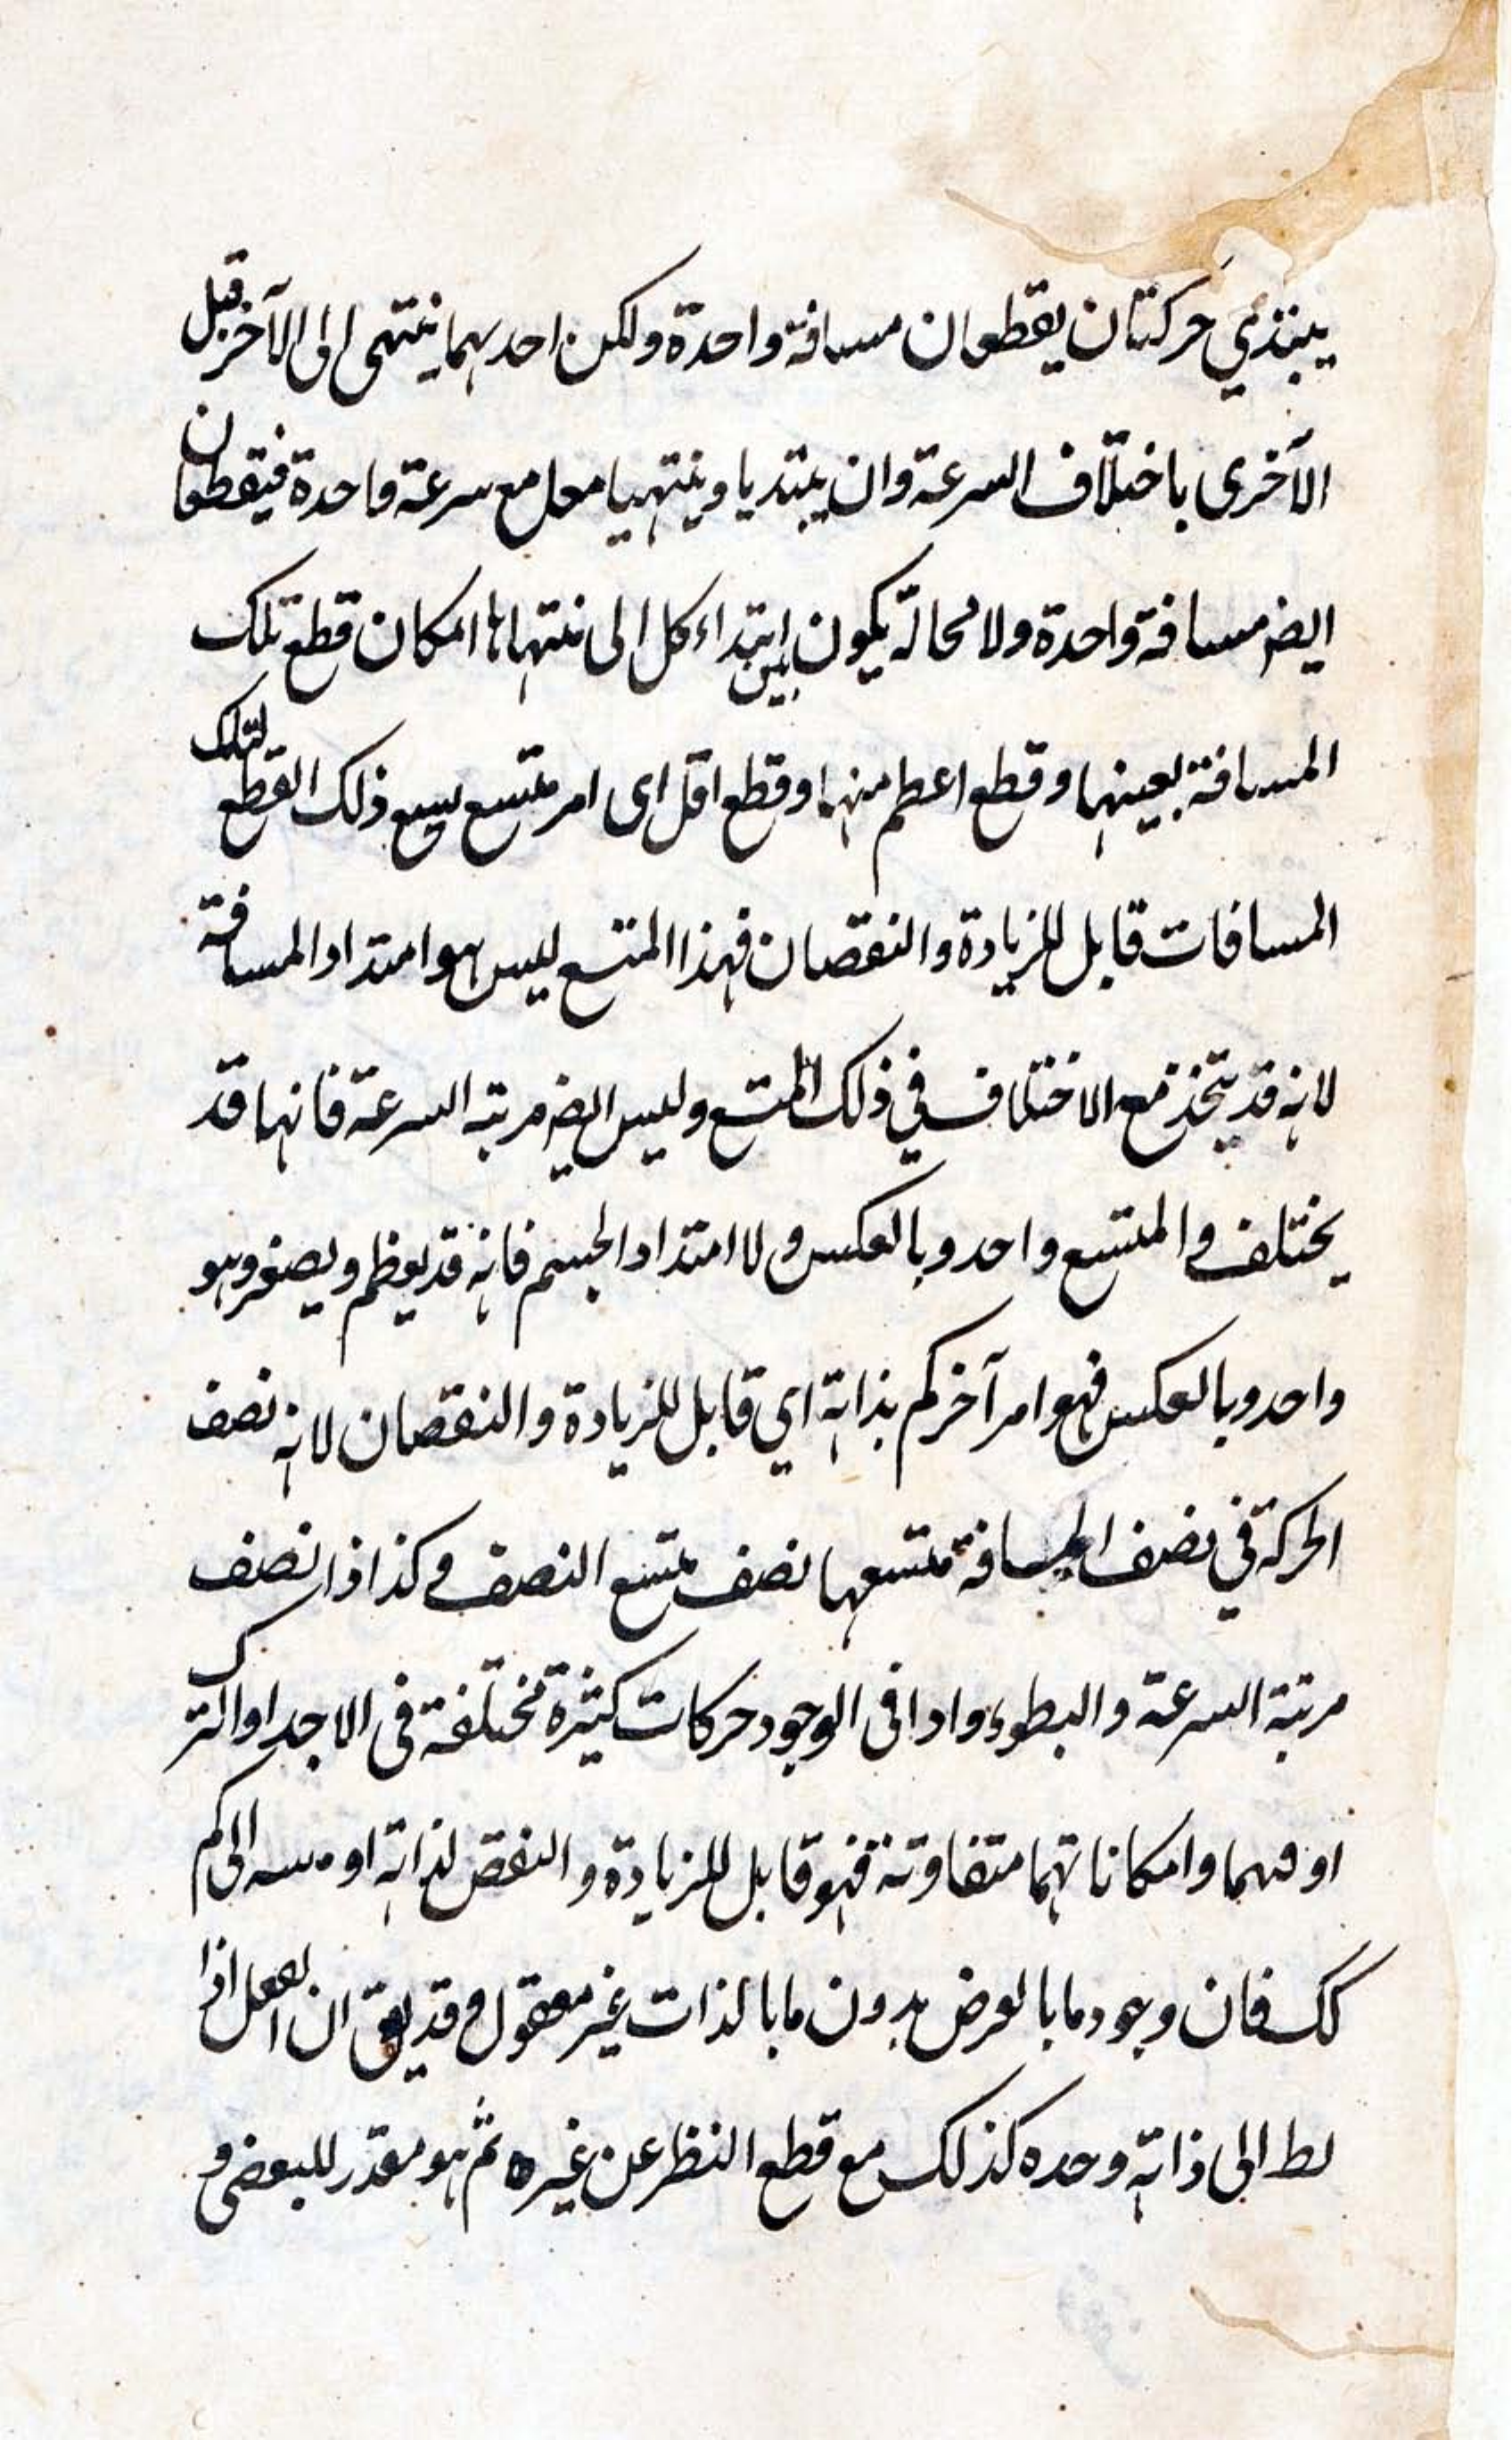 يبتدي حركتان يقطعان مسافة واحدة ولكن احدیهما ینتهی الی الآخر قبل
الآخری باختلاف السرعة وان یبتدیا وینتهیا معا مع سرعة واحدة فیقطعان
ایضا مسافة واحدة ولا محالة یکون بین ابتداء کل الی منتهاها امکان قطع تلک
المسافة بعینها وقطع اعظم منها وقطع اقل ای امر متسع یسع ذلک القطع لتلک
المسافات قابل للزیادة والنقصان فهذا المتسع لیس هو امتداد المسافة
لانه قد یتخذ مع الاختلاف في ذلک المتسع ولیس ایض مرتبة السرعة فانها قد
یختلف والمتسع واحد وبالعکس ولا امتداد الجسم فانه قد یعظم ویصغر وهو
واحد وبالعکس فهو امر آخر کم بذاته اي قابل للزیادة والنقصان لانه نصف
الحرکة في نصف المسافة متسعها نصف متسع النصف وکذا اذا نصف
مرتبة السرعة والبطوء واذا فی الوجود حرکات کثیرة مختلفة فی الاجد او الترک
او فیهما وامکاناتهما متفاوتة فهو قابل للزیادة والنقص لذاته او الی کم
کک فان وجود ما بالعرض بدون ما بالذات غیر معقول وقد یق ان العقل اذا
الی ذاته وحده کذلک مع قطع النظر عن غیره ثم هو مقدر للبعض و